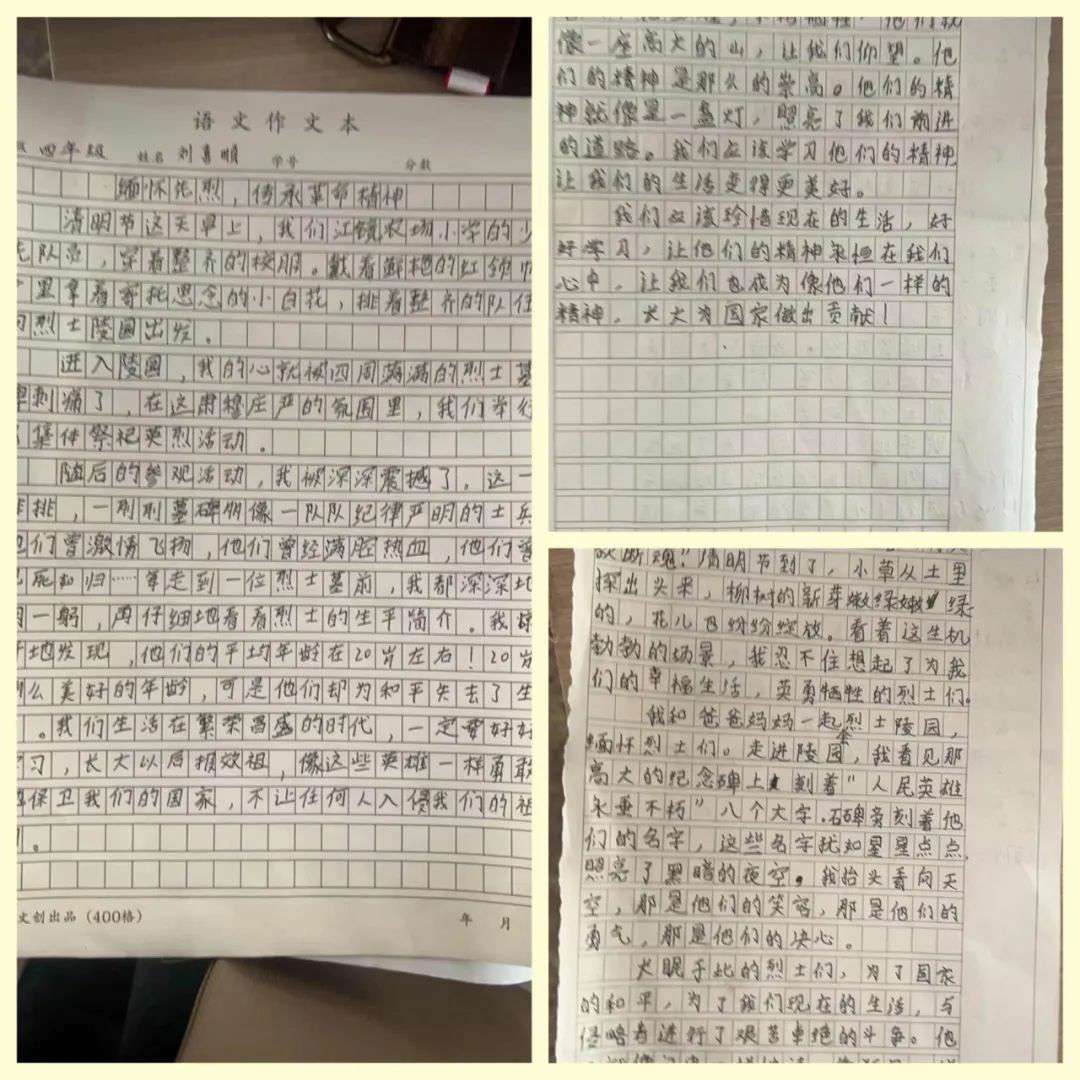 语文作文本
四年级 姓名 刘喜顺 学号 分数
缅怀先烈，传承革命精神
清明节这天早上，我们江镜农场小学的少
先队员，穿着整齐的校服。戴着鲜艳的红领巾
里拿着寄托思念的小白花，排着整齐的队伍
向烈士陵园出发。
进入陵园，我的心就被四周满满的烈士墓
碑刺痛了，在这肃穆庄严的氛围里，我们举行
集体祭祀英烈活动。
随后的参观活动，我被深深震撼了。这一
排排，一列列墓碑朋像一队队纪律严明的士兵
他们曾激情飞扬，他们曾经满腔热血，他们曾
视死如归……每走到一位烈士墓前，我都深深地
鞠一躬，再仔细地看看烈士的生平简介。我惊
讶地发现，他们的平均年龄在20岁左右！20岁
那么美好的年龄，可是他们却为和平失去了生
。我们生活在繁荣昌盛的时代，一定要好好
学习，长大以后报效祖，像这些英雄一样勇敢
地保卫我们的国家，不让任何人入侵我们的祖
。
文创出品（400格） 年 月
像一座高大的山，让我们仰望。他
们的精神是那么的崇高。他们的精
神就像是一盏灯，照亮了我们前进
的道路。我们应该学习他们的精神
让我们的生活变得更美好。
我们应该珍惜现在的生活，好
好学习，让他们的精神永恒在我们
心中。让我们也成为像他们一样的
精神。长大为国家做出贡献！
欲断魂。”清明节到了，小草从土里
探出头来，柳树的新芽嫩绿嫩绿
的，花儿也纷纷绽放。看着这生机
勃勃的场景，我忍不住想起了为我
们的幸福生活，英勇牺牲的烈士们。
我和爸爸妈妈一起烈士陵园，
缅怀烈士们。走进陵园，我看见那
高大的纪念碑上刻着“人民英雄
永垂不朽”八个大字.碑旁刻着他
们的名字，这些名字犹如星星点点，
照亮了黑暗的夜空。我抬头看向天
空，那是他们的笑容，那是他们的
勇气，那是他们的决心。
长眠于此的烈士们，为了国家
的和平，为了我们现在的生活，与
侵略者进行了艰苦卓绝的斗争。他